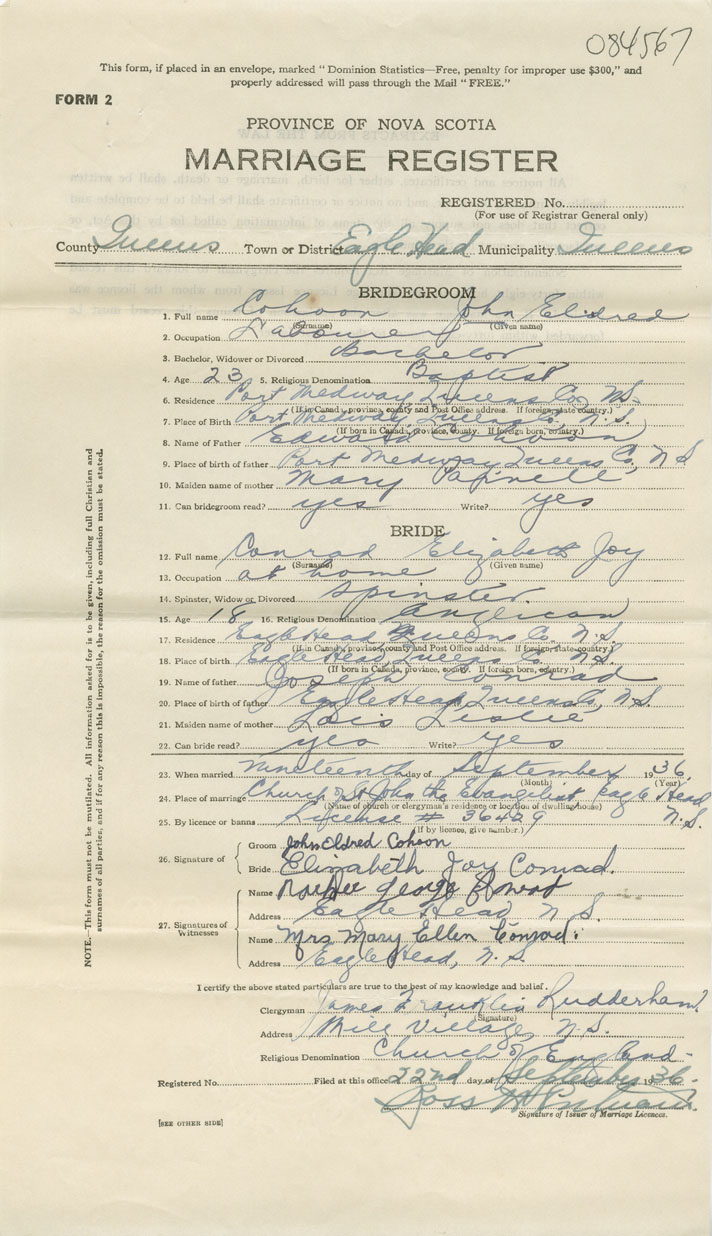 084567
This form, if placed in an envelope, marked " Dominion Statistics—Free, penalty for improper use $300," and
properly addressed will pass through the Mail " FREE."
FORM 2
PROVINCE OF NOVA SCOTIA
MARRIAGE REGISTER
REGISTERED No.
(For use of Registrar General only)
County Queens Town or District Eagle Head Municipality Queens
BRIDEGROOM
1. Full name Cohoon John Eldred
(Surname) (Given name)
2. Occupation Labourer
3. Bachelor, Widower or Divorced Bachelor
4. Age 23 5. Religious Denomination Baptist
6. Residence Port Medway Queens Co. N.S.
(If in Canada, province, county and Post Office address. If foreign, state country.)
7. Place of Birth Port Medway Queens Co. N.S.
(If born in Canada, province, county. If foreign born, country.)
8. Name of Father Edward Cohoon
9. Place of birth of father Port Medway Queens Co. N S
10. Maiden name of mother Mary
11. Can bridegroom read? yes Write? yes
BRIDE
12. Full name Conrad Elizabeth Joy
(Surname) (Given name)
13. Occupation at home
14. Spinster, Widow or Divorced Spinster
15. Age 18 16. Religious Denomination Anglican
17. Residence Eagle Head Queens Co. N.S.
(If in Canada, province, county and Post Office address. If foreign, state country.)
18. Place of birth Eagle Head, Queens Co. N.S.
(If born in Canada, province, county. If foreign born, country.)
19. Name of father Joseph Conrad
20. Place of birth of father Eagle Head, Queens Co, N.S.
21. Maiden name of mother Lois Leslie
22. Can bride read? yes Write? yes
23. When married nineteenth day of September 1936.
(Month) (Year)
24. Place of marriage Church of St John the Evangelist Eagle Head
(Name of church or clergyman's residence or location of dwelling house) N.S.
25. By licence or banns License # 36429
(If by licence, give number.)
26. Signature of
Groom John Eldred Cohoon
Bride Elizabeth Joy Conrad.
27. Signatures of Witnesses
Name George
Address Eagle Head N. S.
Name Mrs Mary Ellen Conrad.
Address Eagle Head, N. S.
I certify the above stated particulars are true to the best of my knowledge and belief.
Clergyman James Franklin Rudderham
(Signature)
Address Mill Village, N.S.
Religious Denomination Church of England
Registered No. Filed at this office 22nd day of September 1936.
Ross
Signature of Issuer of Marriage Licences.
[SEE OTHER SIDE]
NOTE.—This form must not be mutilated. All information asked for is to be given, including full Christian and
surnames of all parties, and if for any reason this is impossible, the reason for the omission must be stated.